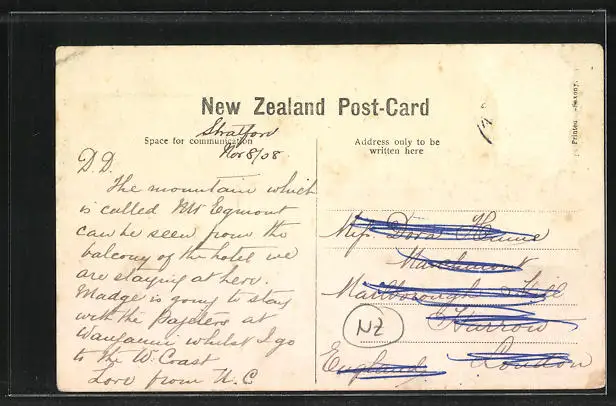 New Zealand Post-Card
Space for communication
Address only to be
written here
Printed
Saxony.
Stratford
Nov 8/08
D.D.
The mountain which
is called Mt Egmont
can be seen from the
balcony of the hotel we
are staying at here.
Madge is going to stay
with the
at
Wanganui whilst I go
to the W. Coast
Love from U.C
Miss Dora
Marlborough Hill
Harrow
England London
NZ